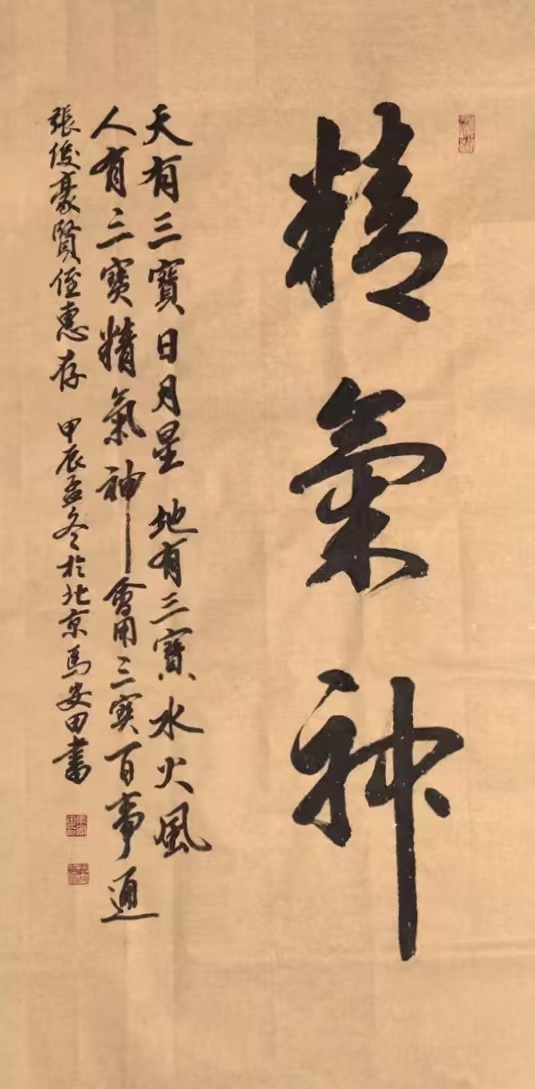 精氣神
天有三寶日月星 地有三寶水火風
人有三寳精氣神 會用三寳百事通
張俊豪賢侄惠存 甲辰孟冬於北京馬安田書